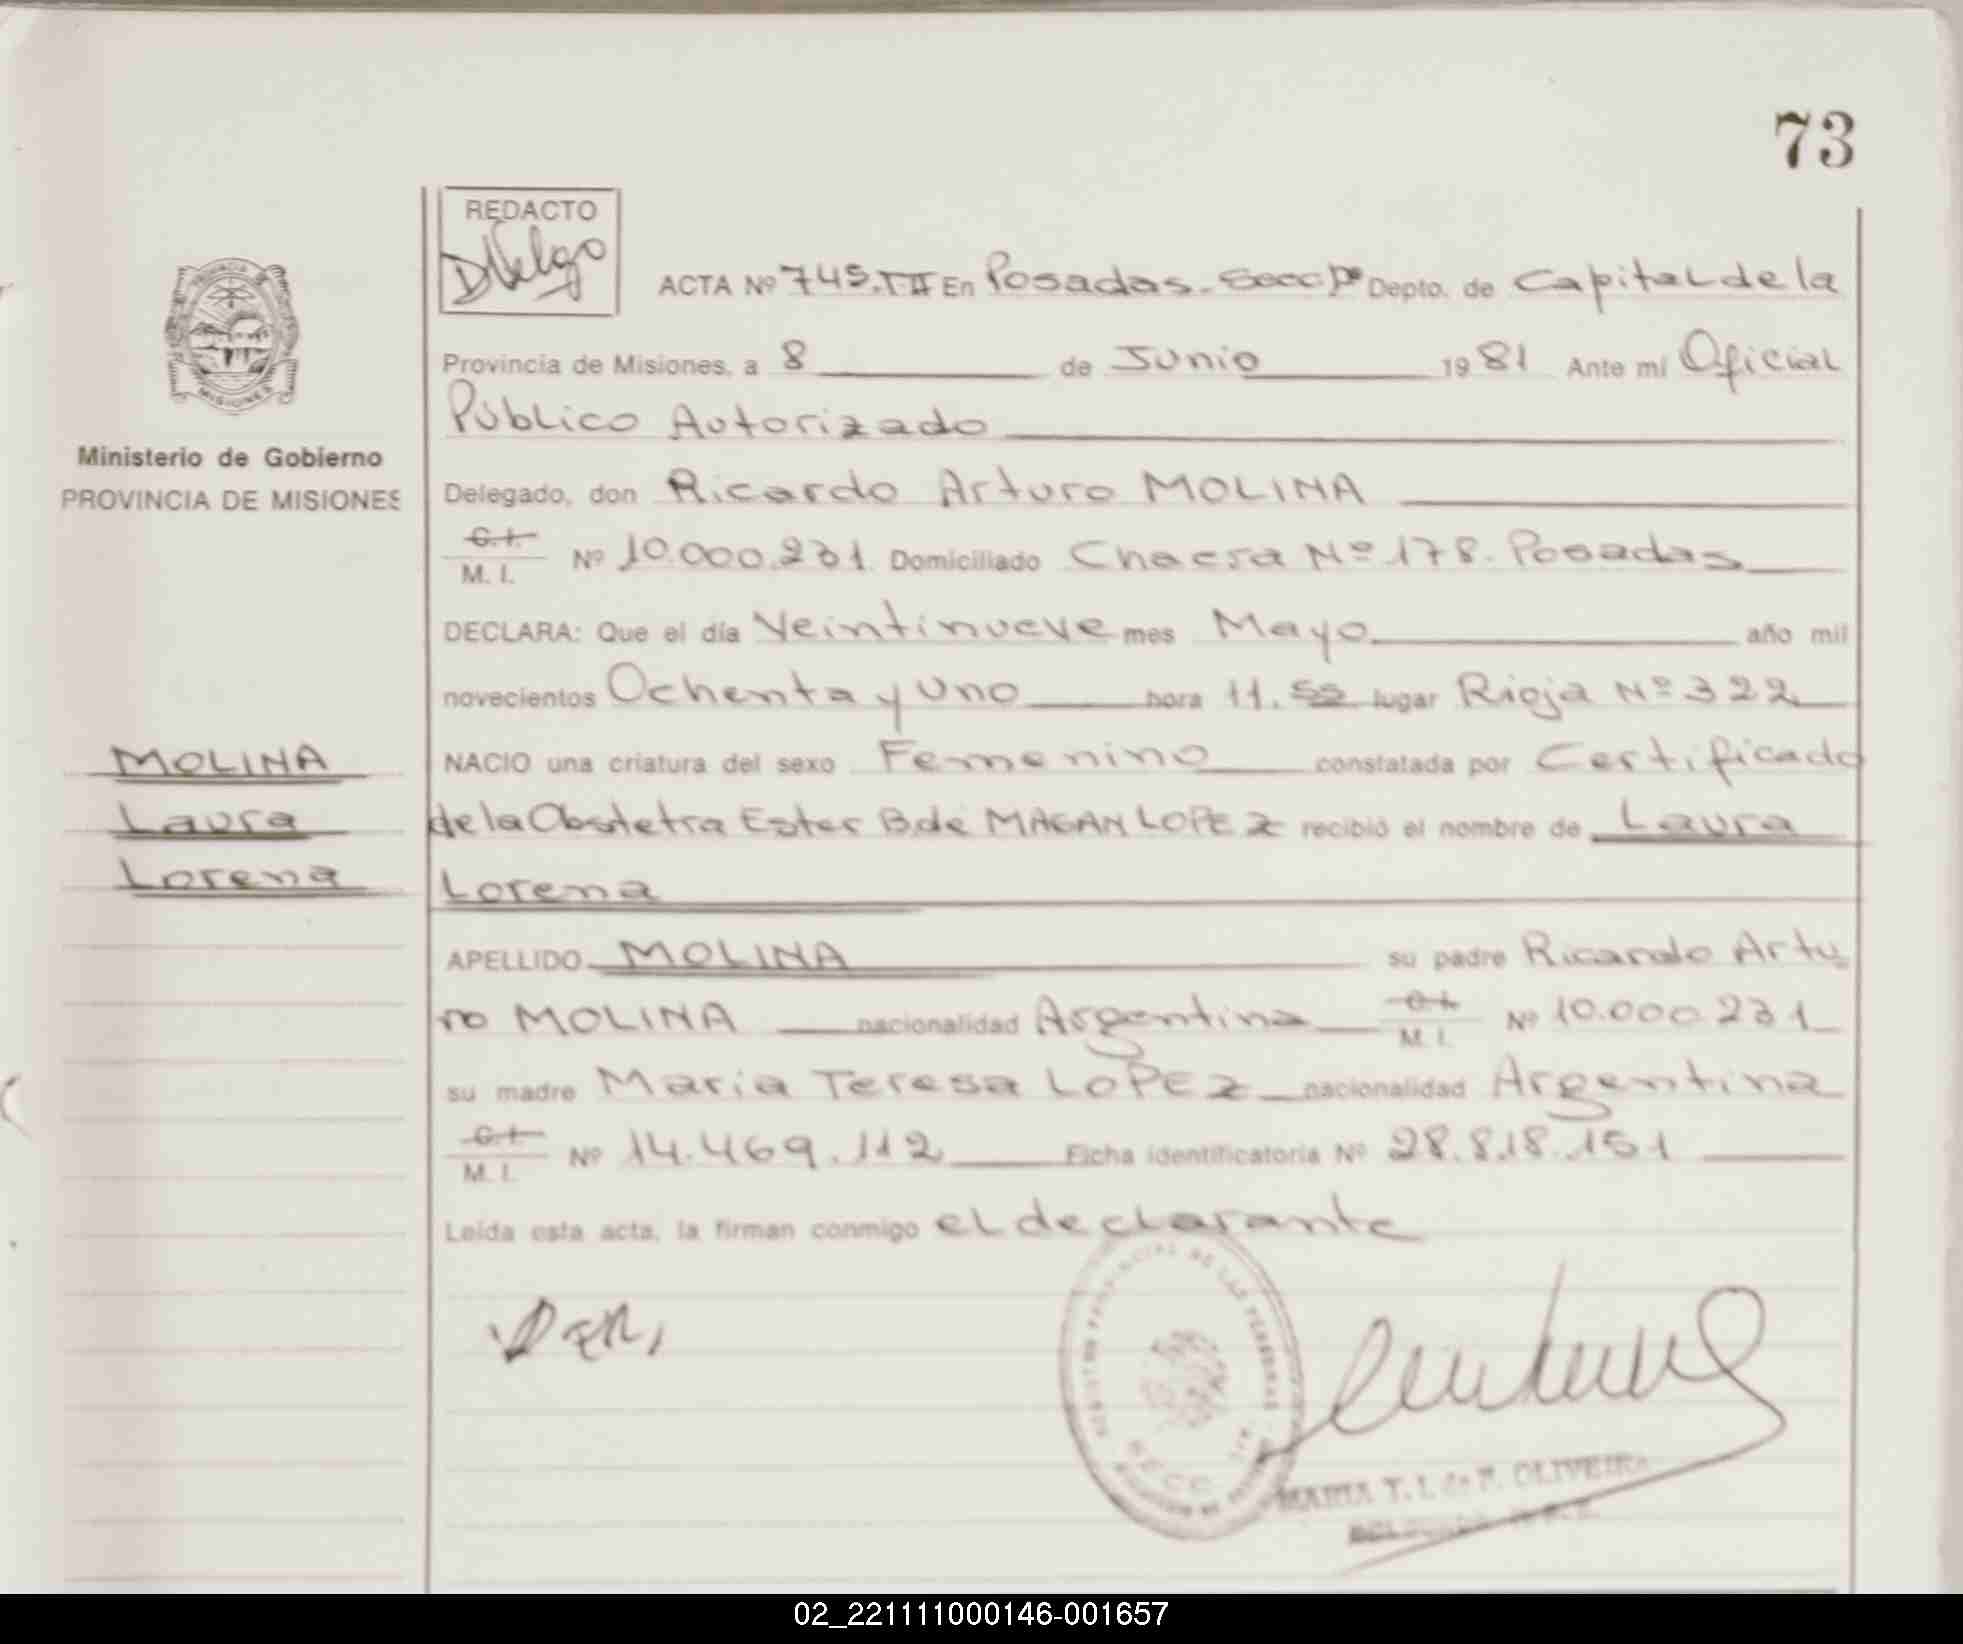 73
REDACTO
ACTA Nº 745.TII En Posadas. Secc 1ª Depto. de Capital de la
Provincia de Misiones, a 8 de Junio 1981 Ante mí Oficial
Público Autorizado
Ministerio de Gobierno
PROVINCIA DE MISIONES
Delegado, don Ricardo Arturo MOLINA
C.I.
M. I. Nº 10.000.231 Domiciliado Chacra Nº 178. Posadas
DECLARA: Que el día Veintinueve mes Mayo año mil
novecientos Ochenta y Uno hora 11.55 lugar Rioja Nº 322
MOLINA
Laura
Lorena
NACIO una criatura del sexo Femenino constatada por Certificado
de la Obstetra Ester B. de MAGAN LOPEZ recibió el nombre de Laura
Lorena
APELLIDO MOLINA su padre Ricardo Artu
ro MOLINA nacionalidad Argentina C.I.
M. I. Nº 10.000.231
su madre Maria Teresa LOPEZ nacionalidad Argentina
C.I.
M. I. Nº 14.469.112 Ficha identificatoria Nº 28.818.151
Leída esta acta, la firman conmigo el declarante
REGISTRO PROVINCIAL DE LAS PERSONAS
SECC. 1ra.
MARIA T. I. de F. OLIVEIRA
02_221111000146-001657